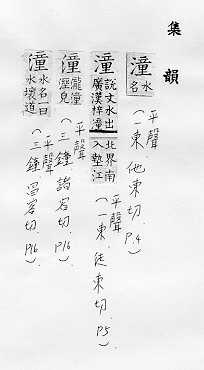 集韻
潼 水名 (平聲 一東 他東切. P.4)
潼 說文水出廣漢梓潼北界南入墊江 (平聲 一東, 徒東切. P5)
潼 瀧潼溼皃 (平聲 三鍾 諸容切. P16)
潼 水名一曰水壞道 (平聲 三鍾 昌容切. P16)